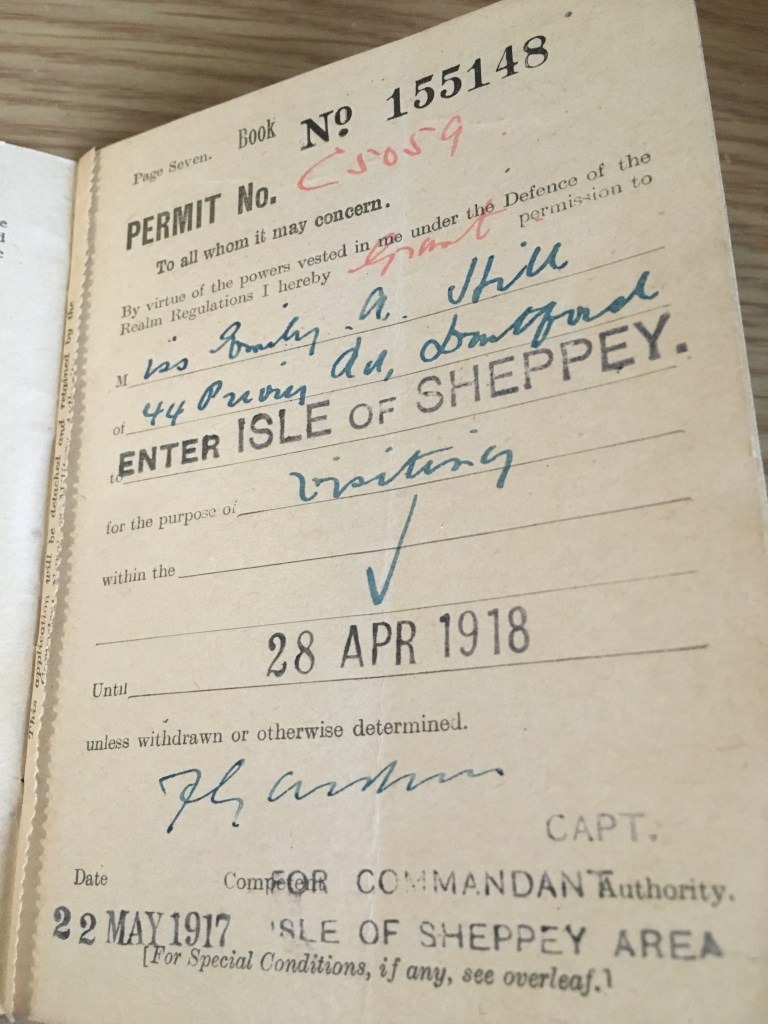 Page Seven. Book Nº 155148
PERMIT No. C5059
To all whom it may concern.
By virtue of the powers vested in me under the Defence of the
Realm Regulations I hereby Grant permission to
Miss Emily A. Hill
of 44 Priory Rd, Dartford
to ENTER ISLE OF SHEPPEY.
for the purpose of visiting
within the
Until 28 APR 1918
unless withdrawn or otherwise determined.
CAPT.
Date Competent Authority.
FOR COMMANDANT
22 MAY 1917 ISLE OF SHEPPEY AREA
[For Special Conditions, if any, see overleaf.]
This application will be detached and retained by the